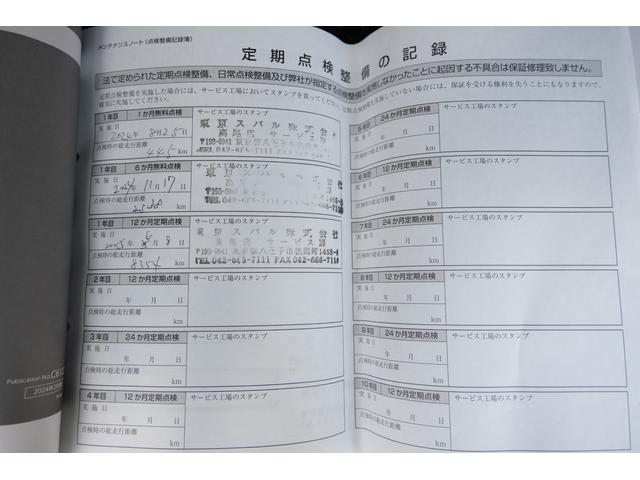 メンテナンスノート（点検整備記録簿）
定期点検整備の記録
法で定められた定期点検整備、日常点検整備及び弊社が指定する点検整備を実施しなかったことに起因する不具合は保証修理致しません。
定期点検整備を実施した場合には、サービス工場においてスタンプを貰ってください。定期点検整備を実施していない場合には、保証を受ける権利を失うこともなりますので、
確実に実施してください。
1年目 1か月無料点検 サービス工場のスタンプ
実施日
2024年 8月25日
東京スバル株式会社
高尾店 サービス課
〒193-0941 東京都八王子市狭間町1455-8
TEL.042-665-7111 FAX.042-666-711
点検時の総走行距離
445 km
1年目 6か月無料点検 サービス工場のスタンプ
実施日
2024年 11月17日
〒193-0941
TEL.042-665-7111
点検時の総走行距離
km
1年目 12か月定期点検 サービス工場のスタンプ
実施日
2025年 6月8日
東京スバル株式会社
高尾店 サービス課
〒193-0941 東京都八王子市狭間町1455-8
TEL.042-665-7111 FAX.042-666-711
点検時の総走行距離
8354 km
2年目 12か月定期点検 サービス工場のスタンプ
実施日
年 月 日
点検時の総走行距離
km
3年目 24か月定期点検 サービス工場のスタンプ
実施日
年 月 日
点検時の総走行距離
km
4年目 12か月定期点検 サービス工場のスタンプ
実施日
年 月 日
点検時の総走行距離
km
5年目 24か月定期点検 サービス工場のスタンプ
実施日
年 月 日
点検時の総走行距離
km
6年目 12か月定期点検 サービス工場のスタンプ
実施日
年 月 日
点検時の総走行距離
km
7年目 24か月定期点検 サービス工場のスタンプ
実施日
年 月 日
点検時の総走行距離
km
8年目 12か月定期点検 サービス工場のスタンプ
実施日
年 月 日
点検時の総走行距離
km
9年目 24か月定期点検 サービス工場のスタンプ
実施日
年 月 日
点検時の総走行距離
km
10年目 12か月定期点検 サービス工場のスタンプ
実施日
年 月 日
点検時の総走行距離
km
Publication No.